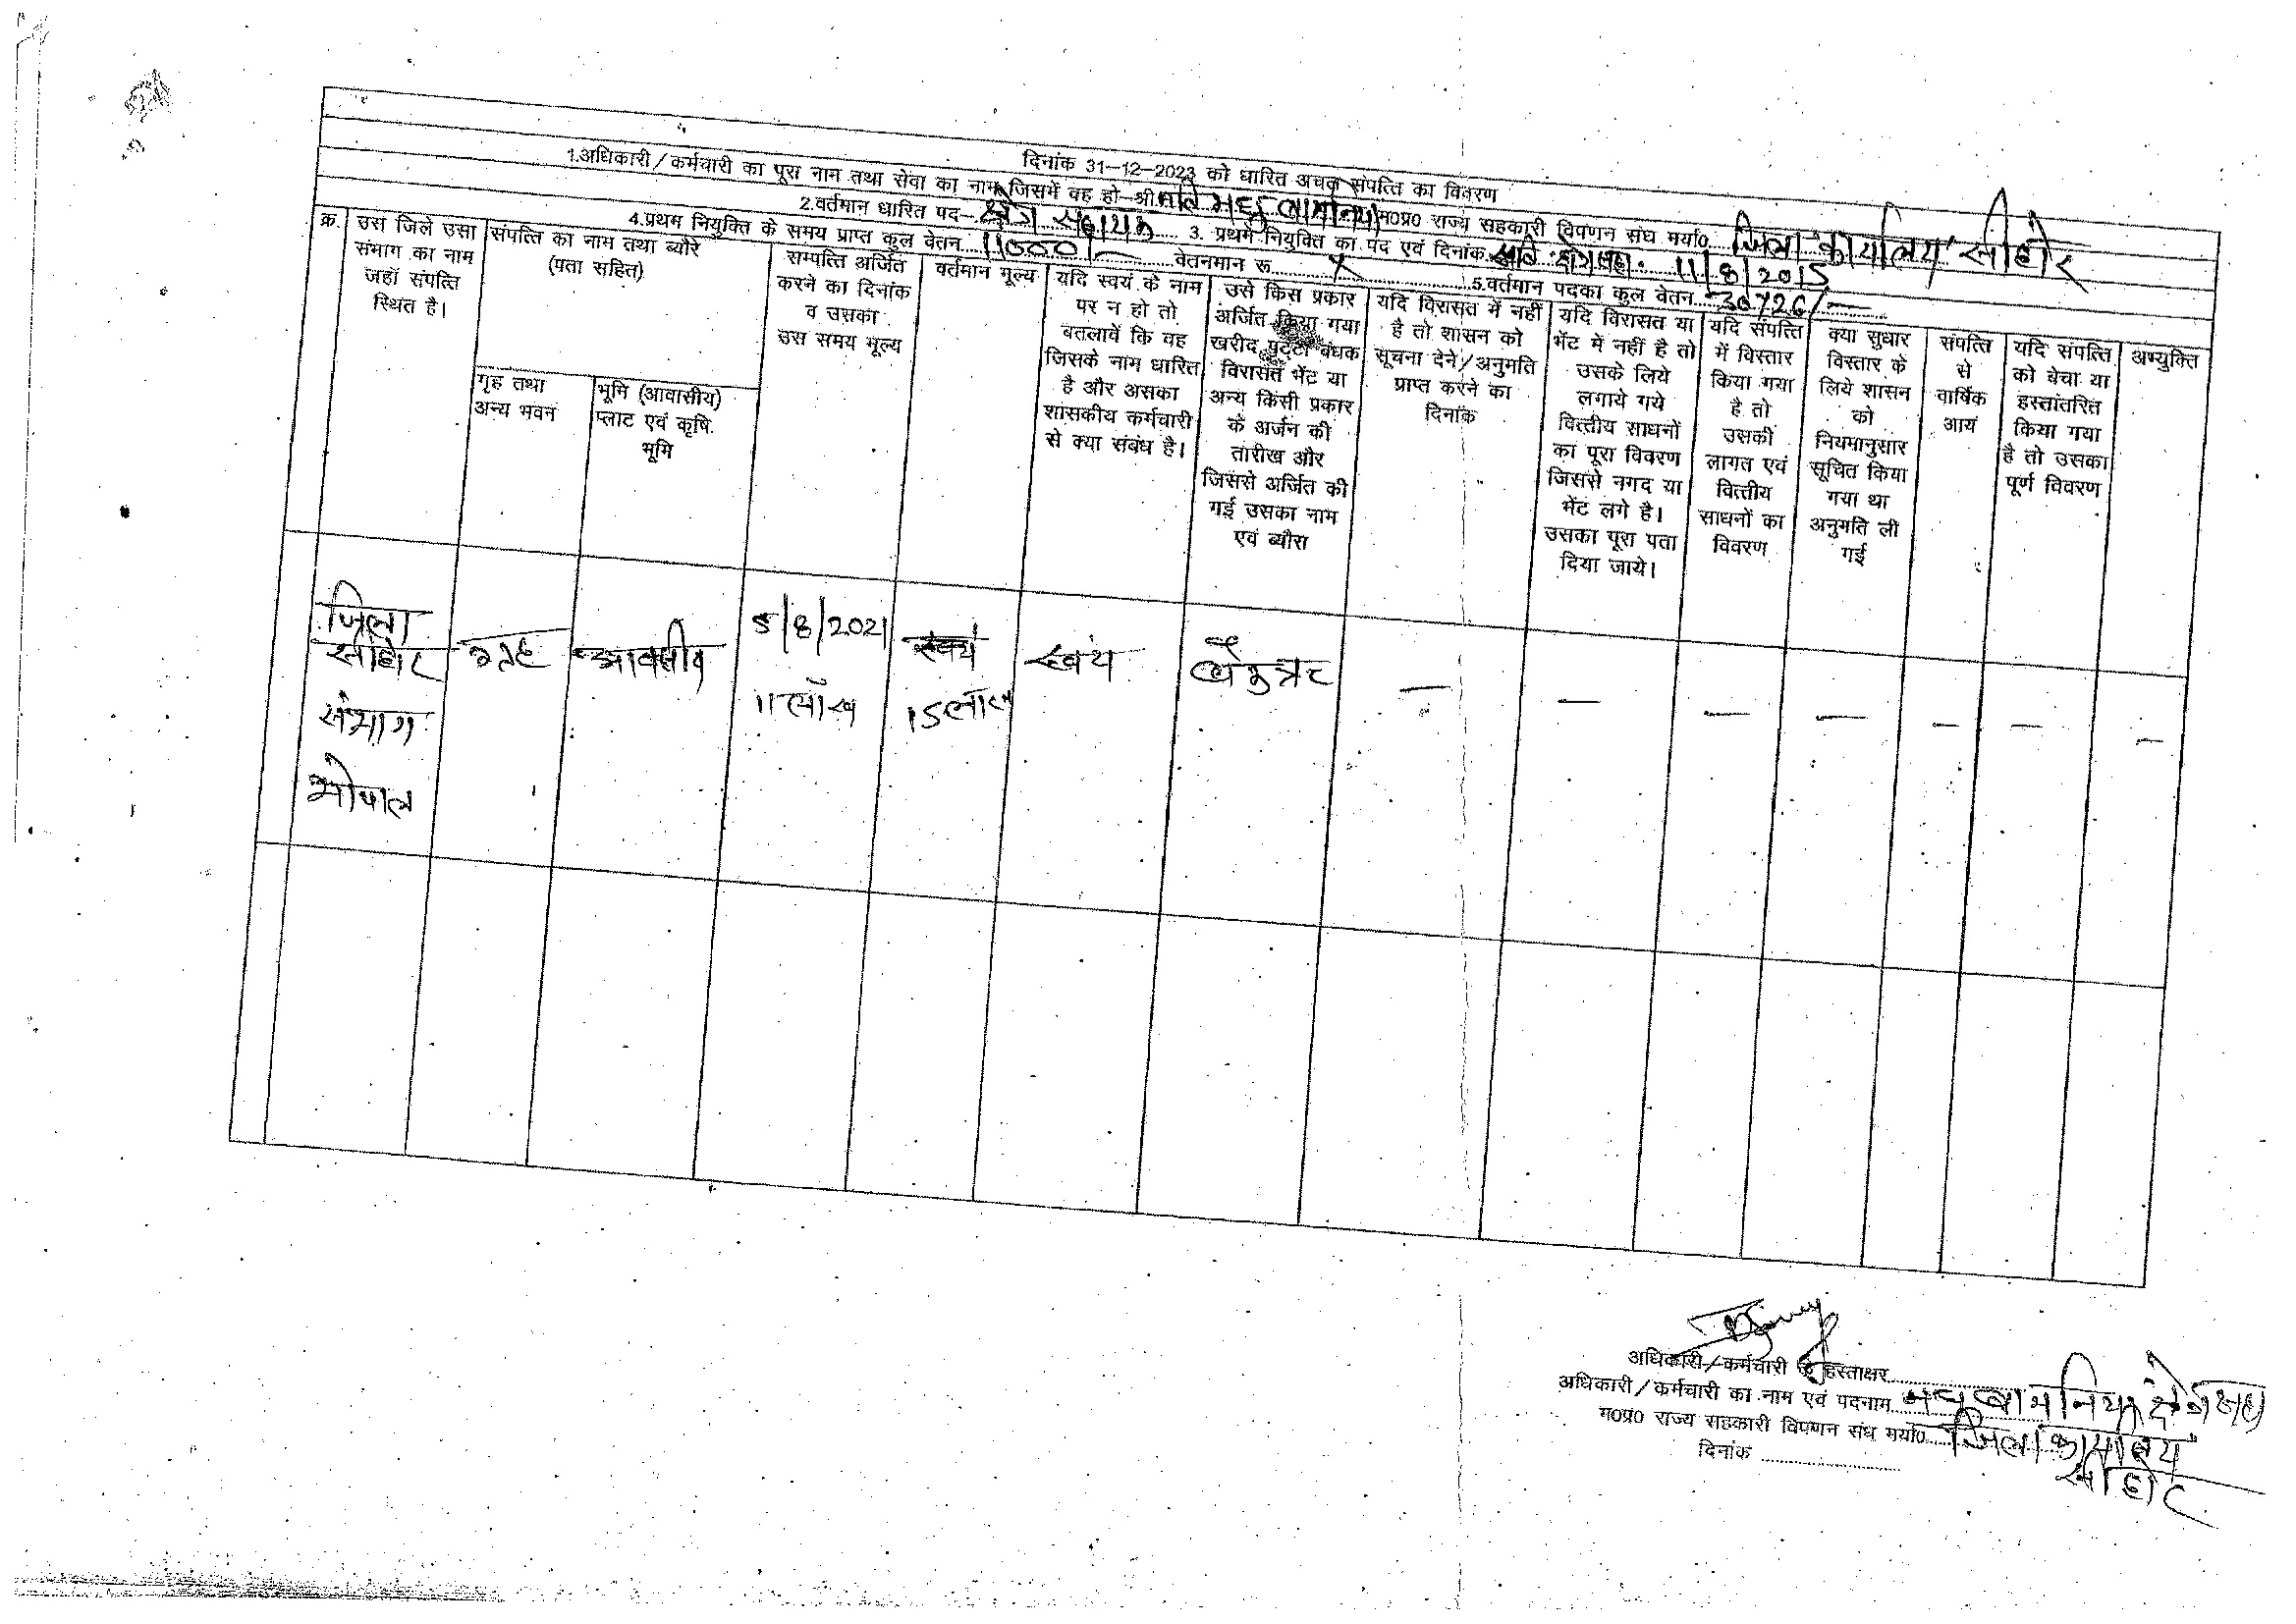 दिनांक 31-12-2023 को धारित अचल संपत्ति का विवरण
1.अधिकारी/कर्मचारी का पूरा नाम तथा सेवा का नाम जिसमें वह हो श्रीमति मधु बामनिया म०प्र० राज्य सहकारी विपणन संघ मर्या०. जिला कार्यालय सीहोर
2.वर्तमान धारित पद- क्षेत्र सहायक 3. प्रथम नियुक्ति का पद एवं दिनांक 11/8/2015
4.प्रथम नियुक्ति के समय प्राप्त कुल वेतन 11000/- वेतनमान रू. x 5.वर्तमान पदका कुल वेतन 30726/-
क्र.
उस जिले उसा
संभाग का नाम
जहाँ संपत्ति
स्थित है।
संपत्ति का नाम तथा ब्यौरे
(पता सहित)
गृह तथा
अन्य भवन
भूमि (आवासीय)
प्लाट एवं कृषि
भूमि
सम्पत्ति अर्जित
करने का दिनांक
व उसका
उस समय मूल्य
वर्तमान मूल्य
यदि स्वयं के नाम
पर न हो तो
बतलावें कि वह
जिसके नाम धारित
है और असका
शासकीय कर्मचारी
से क्या संबंध है।
उसे किस प्रकार
अर्जित किया गया
खरीद पट्टा बंधक
विरासत भेंट या
अन्य किसी प्रकार
के अर्जन की
तारीख और
जिससे अर्जित की
गई उसका नाम
एवं ब्यौरा
यदि विरासत में नहीं
है तो शासन को
सूचना देने/अनुमति
प्राप्त करने का
दिनांक
यदि विरासत या
भेंट में नहीं है तो
उसके लिये
लगाये गये
वित्तीय साधनों
का पूरा विवरण
जिससे नगद या
भेंट लगे है।
उसका पूरा पता
दिया जाये।
यदि संपत्ति
में विस्तार
किया गया
है तो
उसकी
लागत एवं
वित्तीय
साधनों का
विवरण
क्या सुधार
विस्तार के
लिये शासन
को
नियमानुसार
सूचित किया
गया था
अनुमति ली
गई
संपत्ति
से
वार्षिक
आय
यदि संपत्ति
को बेचा या
हस्तांतरित
किया गया
है तो उसका
पूर्ण विवरण
अभ्युक्ति
जिला
सीहोर
संभाग
भोपाल
गृह
आवसीय
5/8/2021
11 लाख
स्वयं
15 लाख
स्वयं
— — — — — — —
अधिकारी/कर्मचारी के हस्ताक्षर
अधिकारी/कर्मचारी का नाम एवं पदनाम मधु बामनिया
म०प्र० राज्य सहकारी विपणन संघ मर्या० जिला कार्यालय
सीहोर
दिनांक